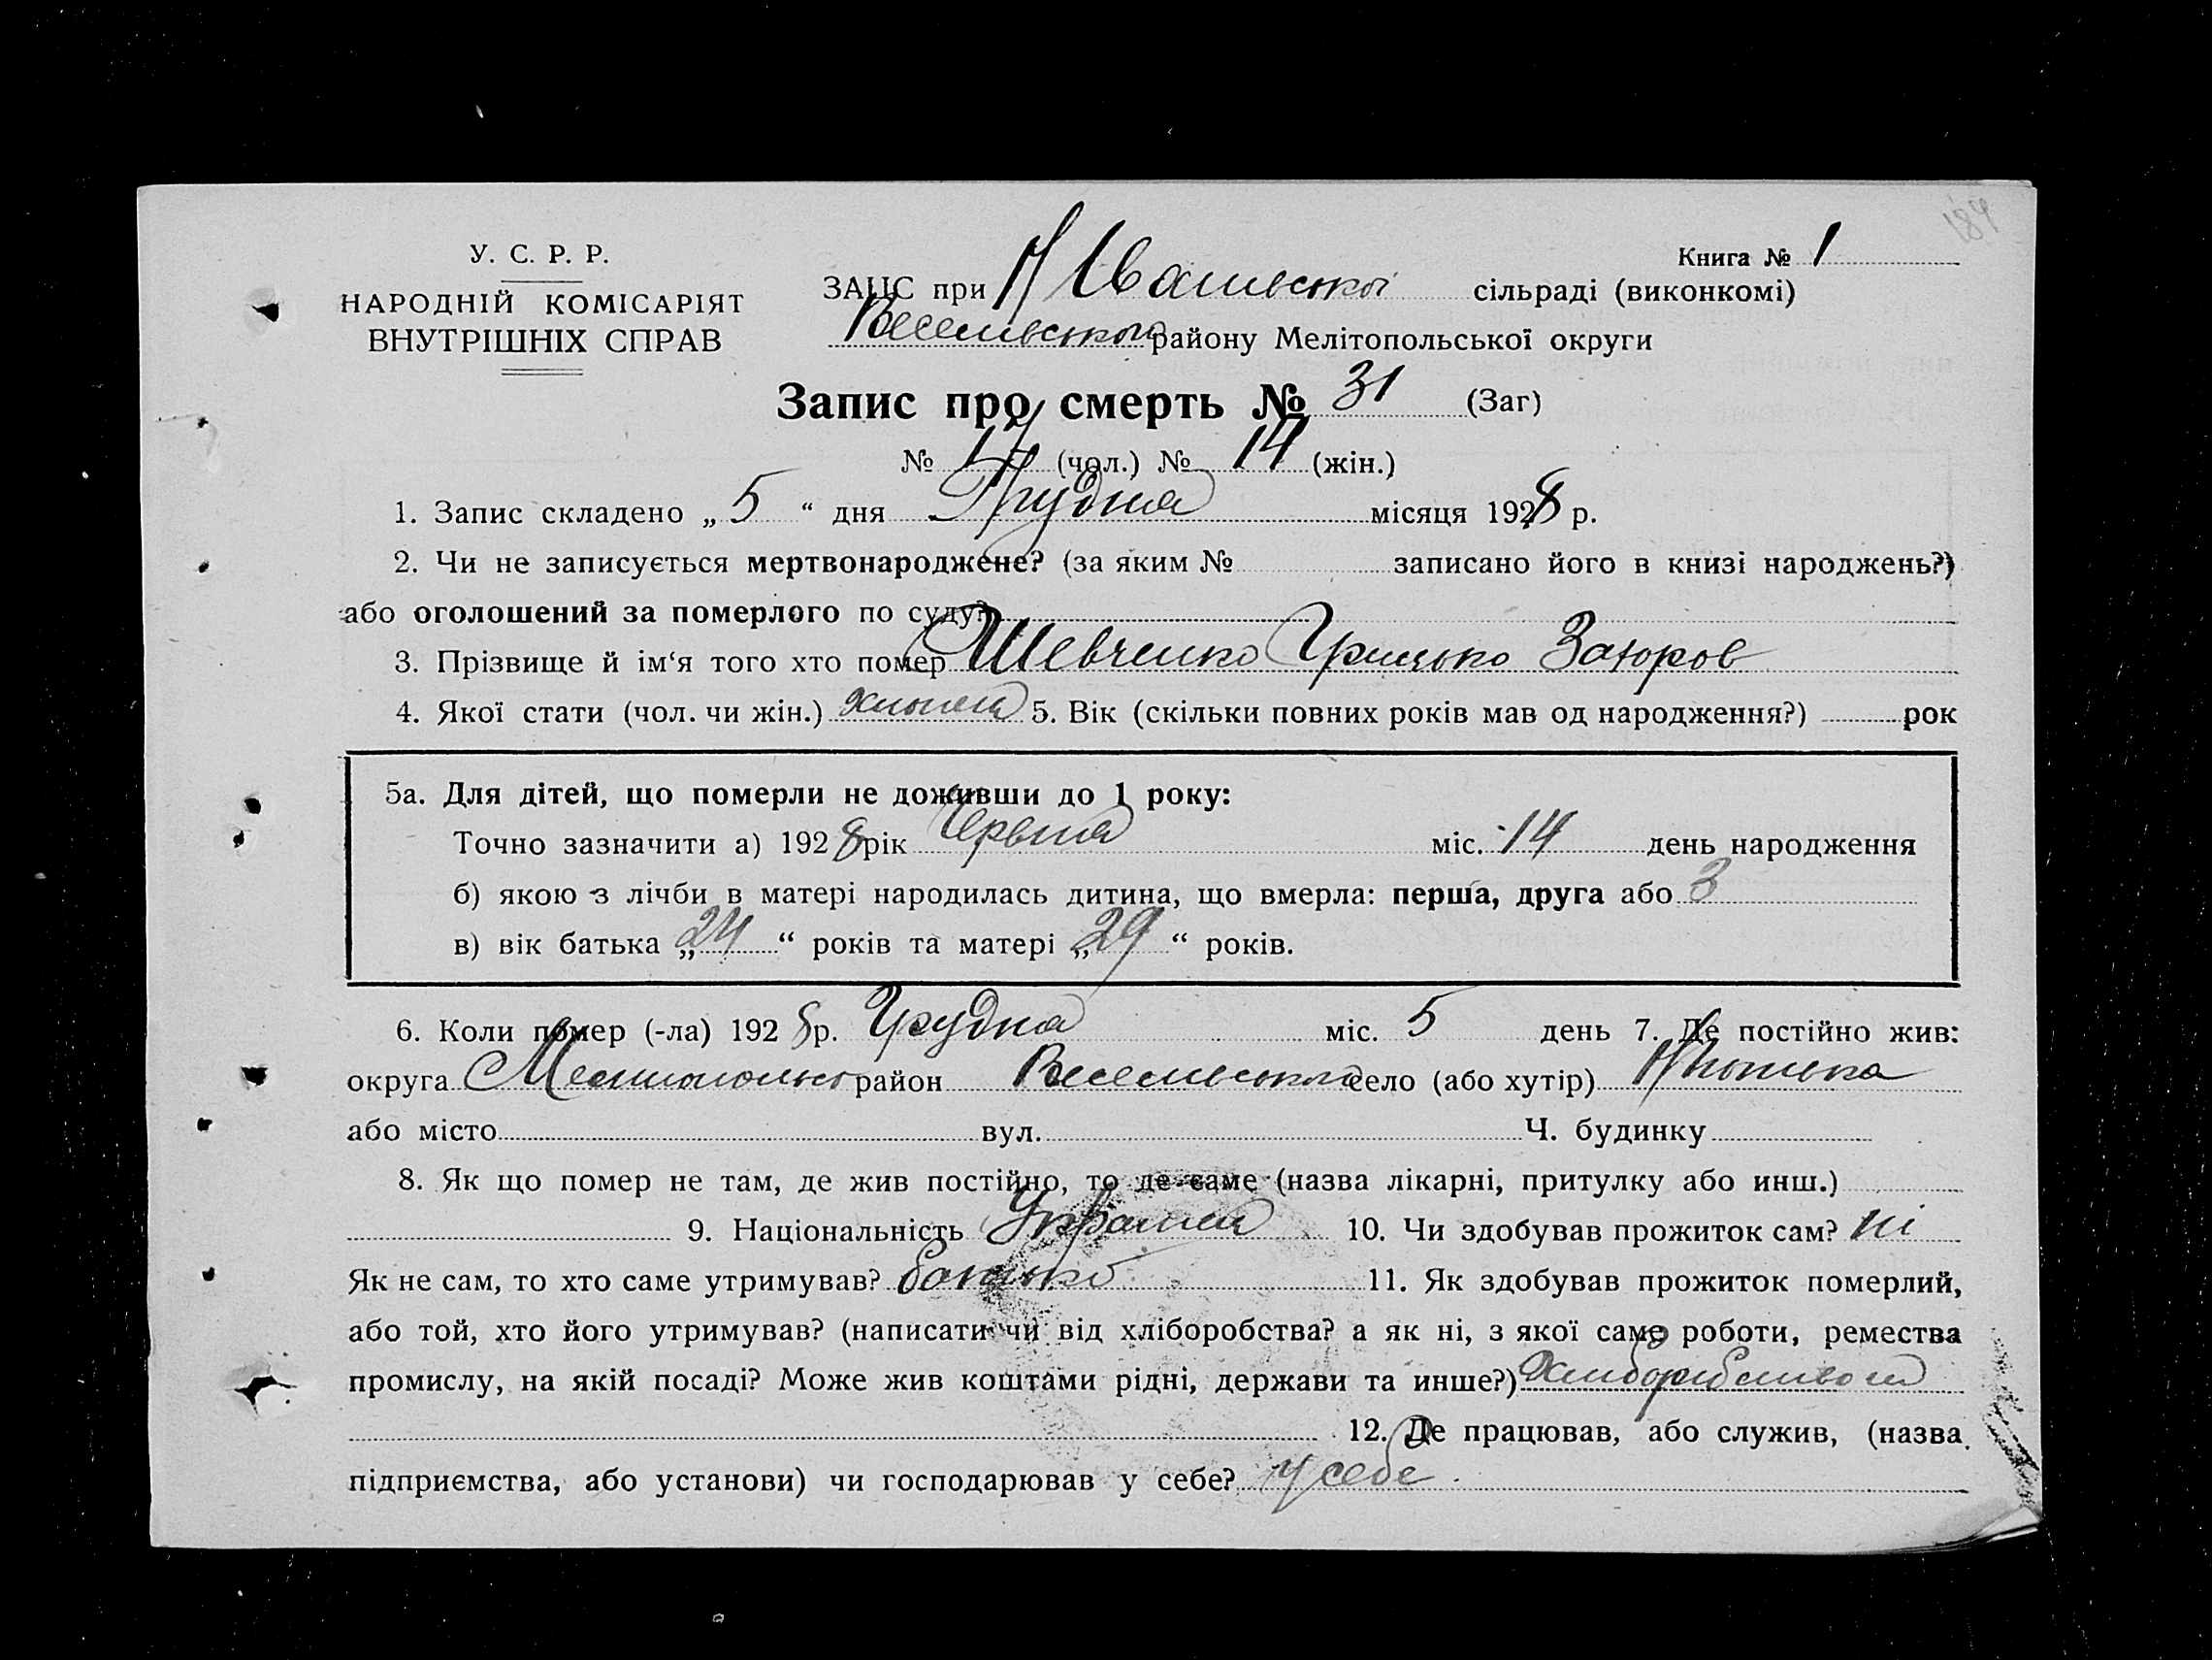 189
У. С. Р. Р.
НАРОДНІЙ КОМІСАРІЯТ
ВНУТРІШНІХ СПРАВ
Книга № 1
ЗАГС при сільраді (виконкомі)
Веселівського району Мелітопольської округи
Запис про смерть № 31 (Заг)
№ 17 (чол.) № 14 (жін.)
1. Запис складено „ 5 “ дня Грудня місяця 1928 р.
2. Чи не записується мертвонароджене? (за яким № записано його в книзі народжень?)
або оголошений за померлого по суду?
3. Прізвище й ім‘я того хто помер Шевченко Грицько
4. Якої стати (чол. чи жін.) 5. Вік (скільки повних років мав од народження?) рок
5а. Для дітей, що померли не доживши до 1 року:
Точно зазначити а) 1928 рік Червня міс. 14 день народження
б) якою з лічби в матері народилась дитина, що вмерла: перша, друга або 3
в) вік батька „ 24 “ років та матері „ 29 “ років.
6. Коли помер (-ла) 1928 р. Грудня міс. 5 день 7. Де постійно жив:
округа район Веселівського село (або хутір)
або місто вул. Ч. будинку
8. Як що помер не там, де жив постійно, то де саме (назва лікарні, притулку або инш.)
9. Національність 10. Чи здобував прожиток сам? ні
Як не сам, то хто саме утримував? батько 11. Як здобував прожиток померлий,
або той, хто його утримував? (написати чи від хліборобства? а як ні, з якої саме роботи, ремества
промислу, на якій посаді? Може жив коштами рідні, держави та инше?) Хліборобством
12. Де працював, або служив, (назва
підприємства, або установи) чи господарював у себе? у себе